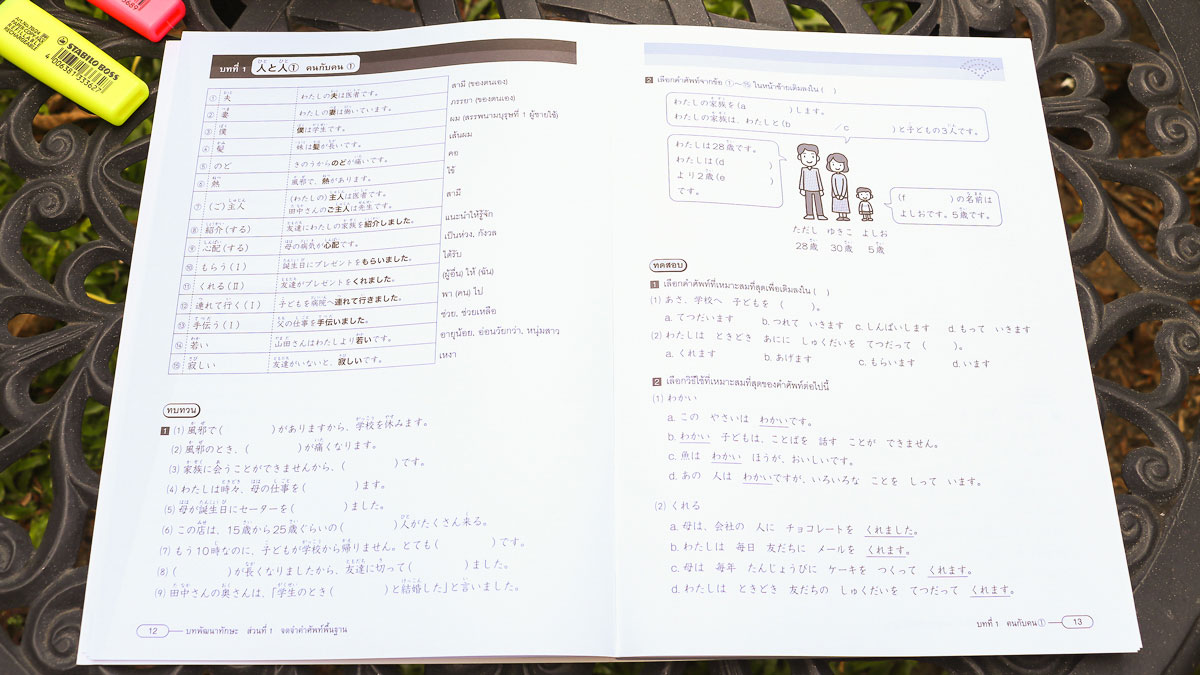 STABILO BOSS
4006381333627
บทที่ 1 人と人① คนกับคน ①
① 夫 わたしの夫は医者です。 สามี (ของตนเอง)
② 妻 わたしの妻は働いています。 ภรรยา (ของตนเอง)
③ 僕 僕は学生です。 ผม (สรรพนามบุรุษที่ 1 ผู้ชายใช้)
④ 髪 妹は髪が長いです。 เส้นผม
⑤ のど きのうからのどが痛いです。 คอ
⑥ 熱 風邪で、熱があります。 ไข้
⑦ (ご)主人 (わたしの)主人は医者です。 สามี
田中さんのご主人は先生です。
⑧ 紹介(する) 友達にわたしの家族を紹介しました。 แนะนำให้รู้จัก
⑨ 心配(する) 母の病気が心配です。 เป็นห่วง, กังวล
⑩ もらう(Ⅰ) 誕生日にプレゼントをもらいました。 ได้รับ
⑪ くれる(Ⅱ) 友達がプレゼントをくれました。 (ผู้อื่น) ให้ (ฉัน)
⑫ 連れて行く(Ⅰ) 子どもを病院へ連れて行きました。 พา (คน) ไป
⑬ 手伝う(Ⅰ) 父の仕事を手伝いました。 ช่วย, ช่วยเหลือ
⑭ 若い 山田さんはわたしより若いです。 อายุน้อย, อ่อนวัยกว่า, หนุ่มสาว
⑮ 寂しい 友達がいないと、寂しいです。 เหงา
ทบทวน
1 (1) 風邪で( )がありますから、学校を休みます。
(2) 風邪のとき、( )が痛くなります。
(3) 家族に会うことができませんから、( )です。
(4) わたしは時々、母の仕事を( )ます。
(5) 母が誕生日にセーターを( )ました。
(6) この店は、15歳から25歳ぐらいの( )人がたくさん来る。
(7) もう10時なのに、子どもが学校から帰りません。とても( )です。
(8) ( )が長くなりましたから、友達に切って( )ました。
(9) 田中さんの奥さんは、「学生のとき( )と結婚した」と言いました。
12 บทพัฒนาทักษะ ส่วนที่ 1 จดจำคำศัพท์พื้นฐาน
2 เลือกคำศัพท์จากข้อ ①～⑮ ในหน้าซ้ายเติมลงใน ( )
わたしの家族を(a )します。
わたしの家族は、わたしと(b /c )と子どもの3人です。
わたしは28歳です。
わたしは(d )
より2歳(e )
です。
(f )の名前は
よしおです。5歳です。
ただし ゆきこ よしお
28歳 30歳 5歳
ทดสอบ
1 เลือกคำศัพท์ที่เหมาะสมที่สุดเพื่อเติมลงใน ( )
(1) あさ、学校へ 子どもを ( )。
a. てつだいます b. つれて いきます c. しんぱいします d. もって いきます
(2) わたしは ときどき あにに しゅくだいを てつだって ( )。
a. くれます b. あげます c. もらいます d. います
2 เลือกวิธีใช้ที่เหมาะสมที่สุดของคำศัพท์ต่อไปนี้
(1) わかい
a. この やさいは わかいです。
b. わかい 子どもは、ことばを 話す ことが できません。
c. 魚は わかい ほうが、おいしいです。
d. あの 人は わかいですが、いろいろな ことを しって います。
(2) くれる
a. 母は、会社の 人に チョコレートを くれました。
b. わたしは 毎日 友だちに メールを くれます。
c. 母は 毎年 たんじょうびに ケーキを つくって くれます。
d. わたしは ときどき 友だちの しゅくだいを てつだって くれます。
บทที่ 1 คนกับคน ① 13